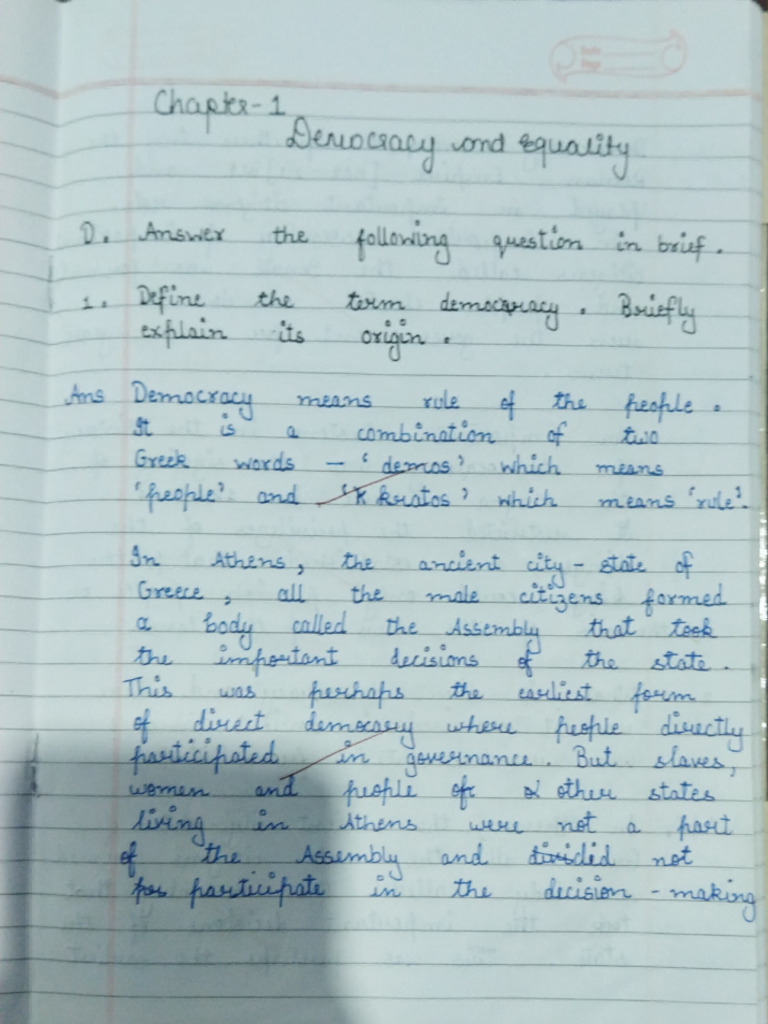 Chapter-1
Democracy and Equality
D. Answer the following question in brief.
1. Define the term democracy. Briefly
explain its origin.
Ans Democracy means rule of the people.
It is a combination of two
Greek words - 'demos' which means
'people' and 'kratos' which means 'rule'.
In Athens, the ancient city-state of
Greece, all the male citizens formed
a body called the Assembly that took
the important decisions of the state.
This was perhaps the earliest form
of direct democary where people directly
participated in governance. But slaves,
women and people of other states
living in Athens were not a part
of the Assembly and did not
participate in the decision-making